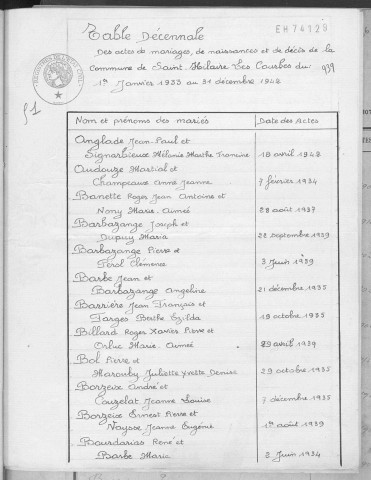 EH 74129
Table Décennale
Des actes de mariages, de naissances et de décès de la
Commune de Saint-Hilaire Les Courbes du
1er Janvier 1933 au 31 décembre 1942
939
Nom et prénoms des mariés
Date des Actes
Anglade Jean Paul et
Signarbieux Mélanie Marthe Francine 18 avril 1942
Audouze Martial et
Champeaux Anne Jeanne 7 février 1934
Banette Roger Jean Antoine et
Nony Marie Aimée 28 août 1937
Barbazange Joseph et
Dupuy Maria 22 septembre 1939
Barbazange Pierre et
Ferol Clémence 3 Juin 1939
Barbe Jean et
Barbazange Angeline 21 décembre 1935
Barrière Jean François et
Farges Berthe 19 octobre 1935
Billard Roger Xavier Pierre et
Orluc Marie Aimée 29 avril 1939
Bol Pierre et
Marouby Juliette Yvette Denise 29 octobre 1935
Borzeix André et
Couzelat Jeanne Louise 7 décembre 1935
Borzeix Ernest Pierre et
Vaysse Jeanne Eugénie 1er août 1939
Bourdarias René et
Barbe Maria 2 Juin 1934